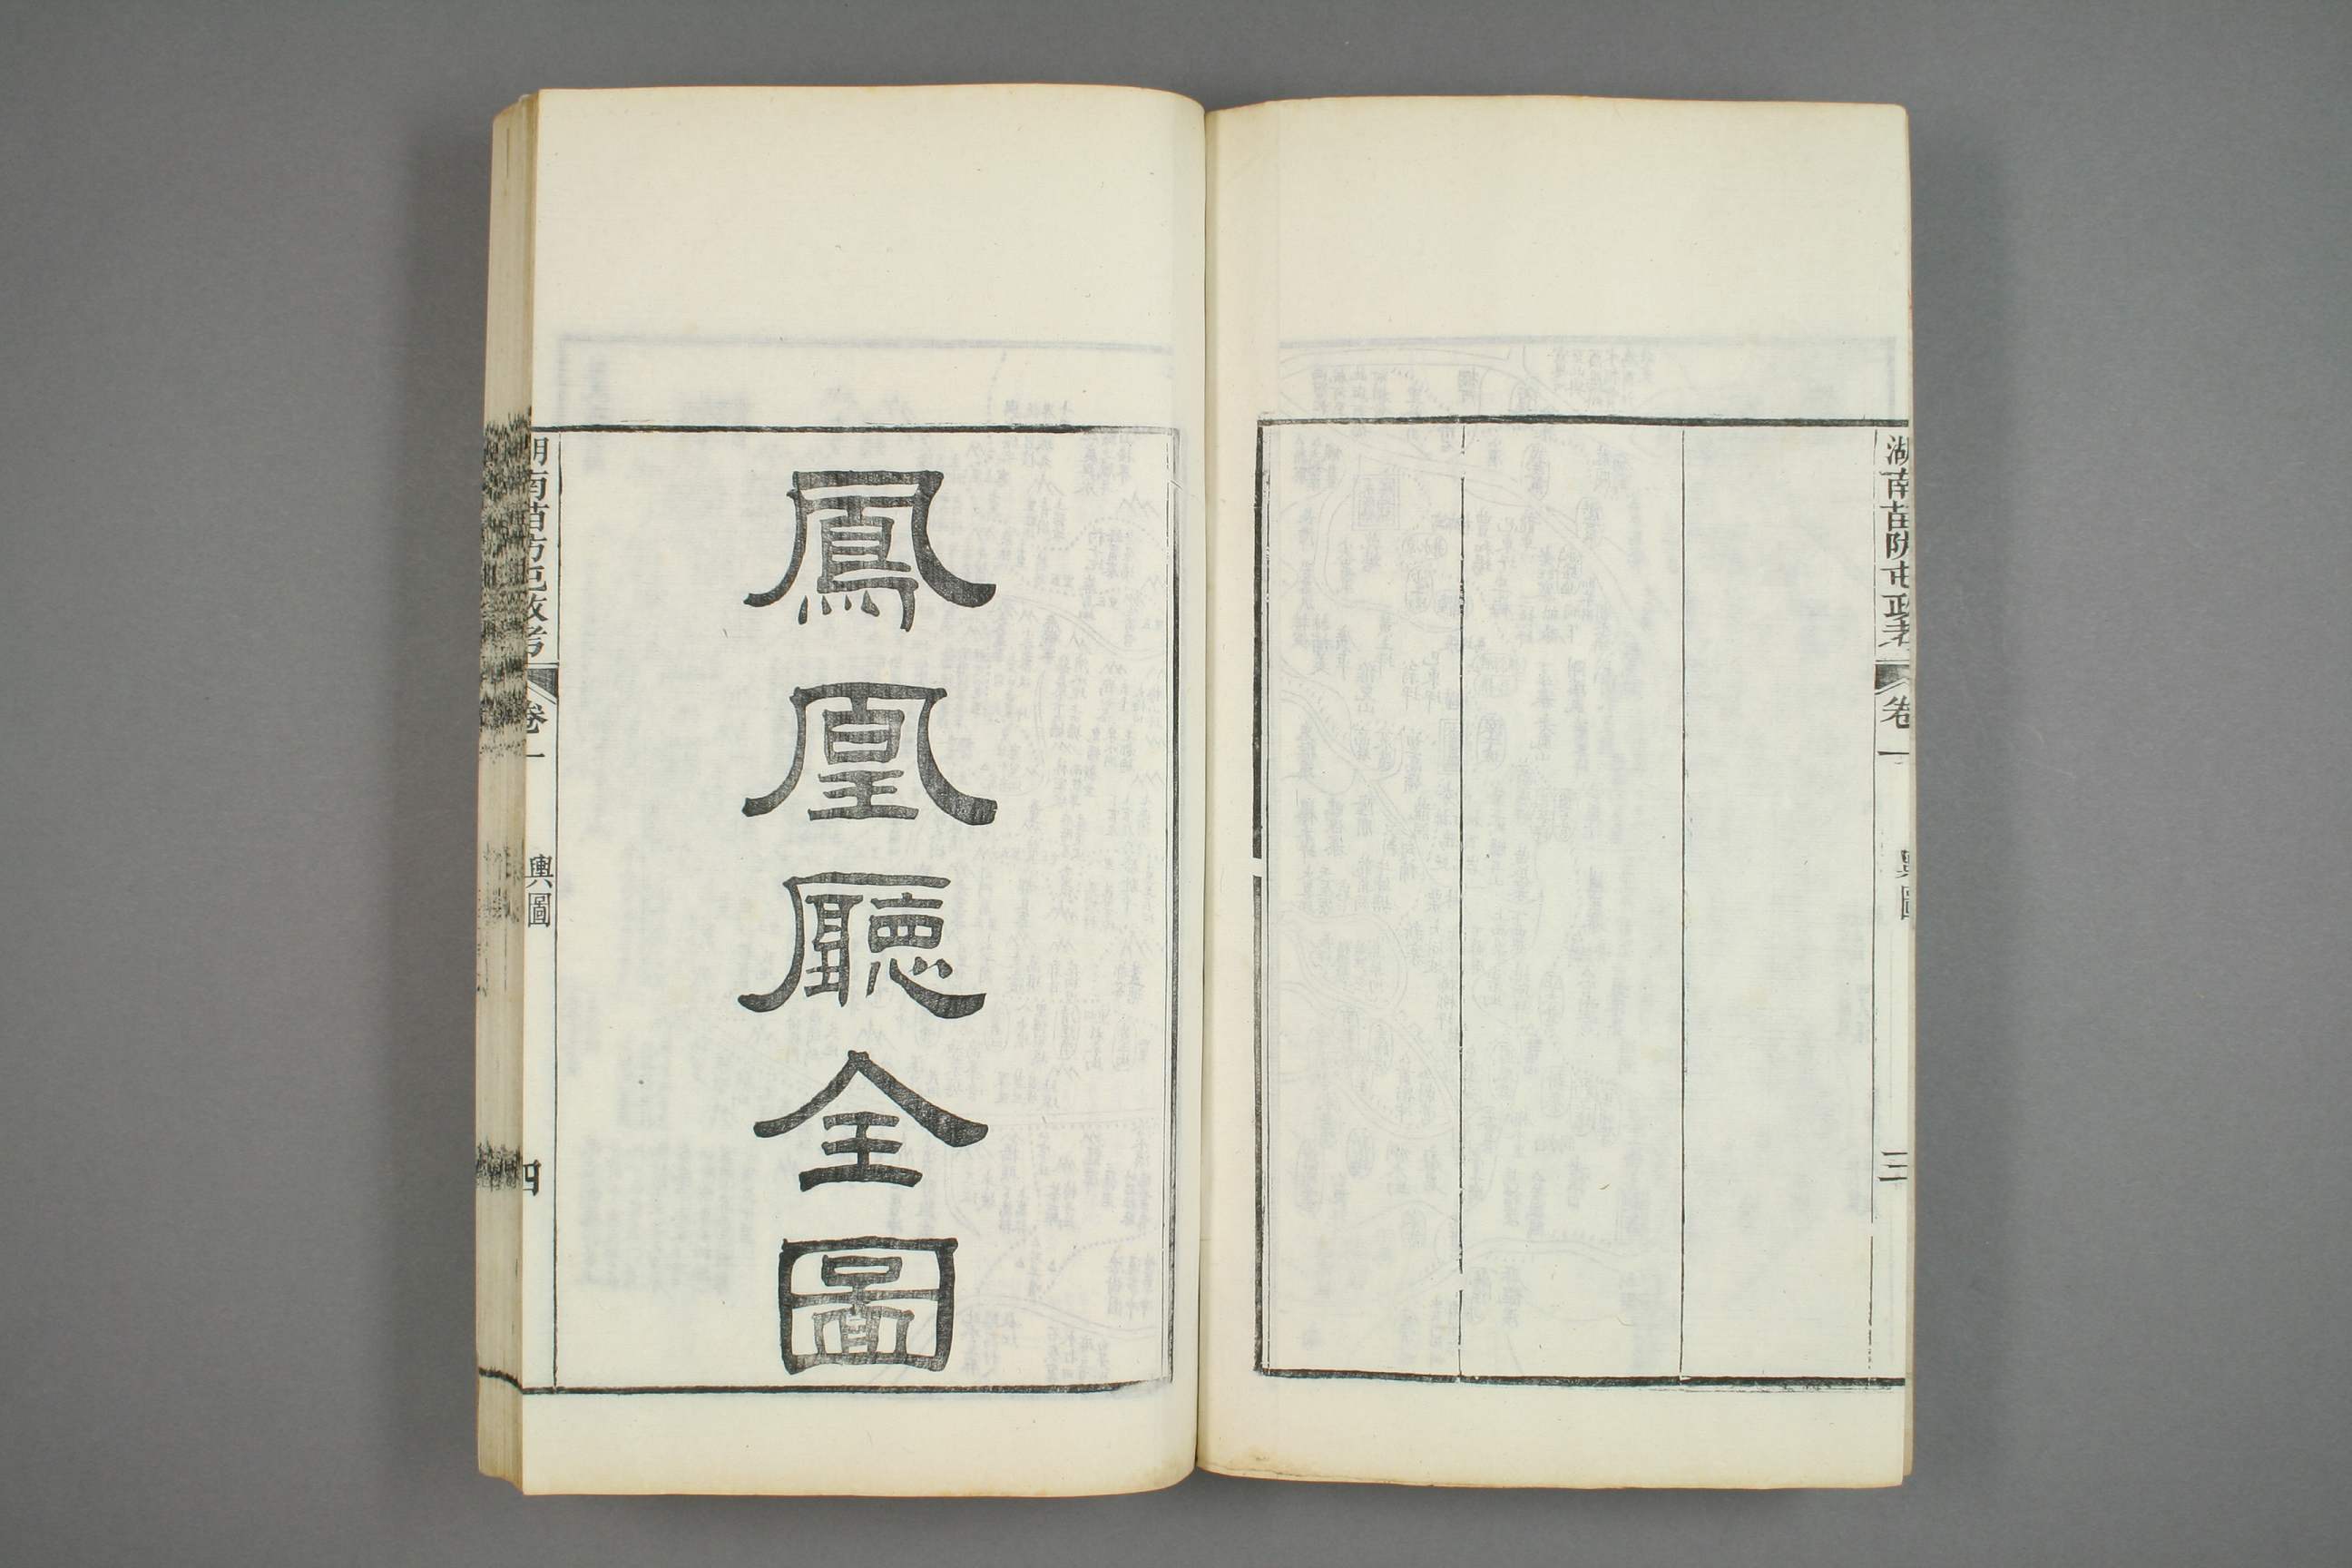 湖南苗防屯政考
卷一
輿圖
三
鳳凰廳全圖
湖南苗防屯政考
卷一
輿圖
四